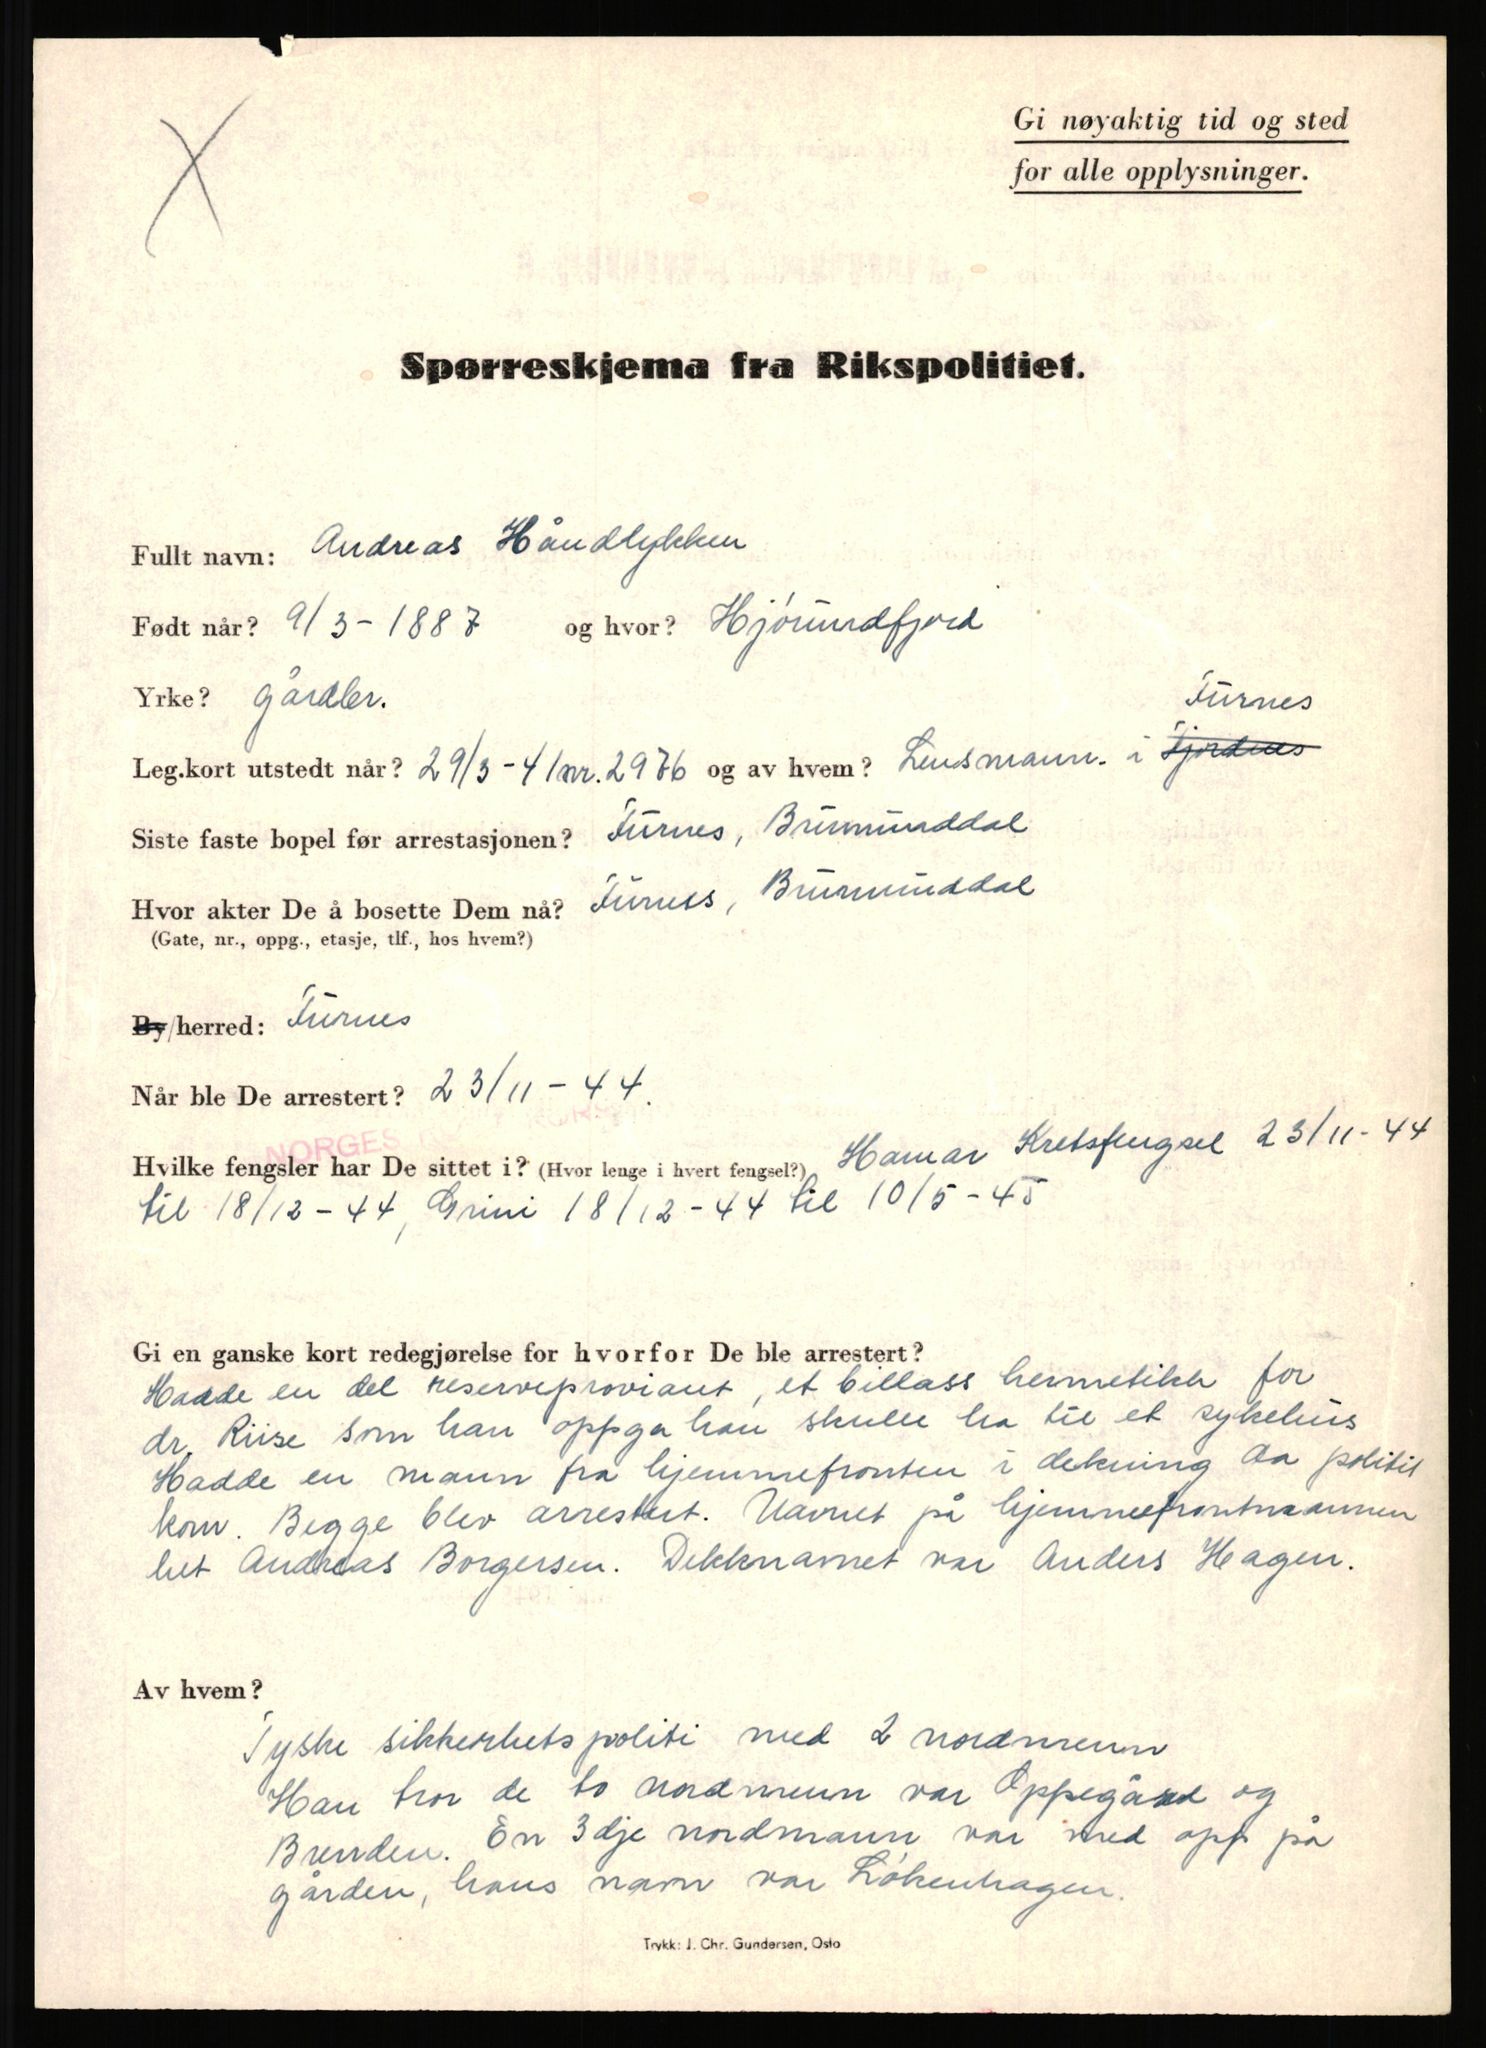 Gi nøyaktig tid og sted
for alle opplysninger.
Spørreskjema fra Rikspolitiet.
Fullt navn: Andreas Håndlykken
Født når? 9/3-1887 og hvor? Hjórundfjord
Yrke? gårdbr.
Furnes
Leg.kort utstedt når? 29/3-41 nr. 2976 og av hvem? Lensmann. i Fjordnes
Siste faste bopel før arrestasjonen? Furnes, Brumunddal
Hvor akter De å bosette Dem nå? Furnes, Brumunddal
(Gate, nr., oppg., etasje, tlf., hos hvem?)
By/herred: Furnes
Når ble De arrestert? 23/11-44.
NORGES
Hvilke fengsler har De sittet i? (Hvor lenge i hvert fengsel?) Hamar Kretsfengsel 23/11-44
til 18/12-44, Grini 18/12-44 til 10/5-45
Gi en ganske kort redegjørelse for hvorfor De ble arrestert?
Hadde en del reserveproviant, et billass hermetikk for
dr. Riise som han oppga han skulle ha til et sykehus
Hadde en mann fra hjemmefronten i dekning da politit
kom. Begge blev arrestert. Navnet på hjemmefrontmannen
het Andreas Borgersen. Dekknavnet var Anders Hagen.
Av hvem?
Tyske sikkerhetspoliti med 2 nordmenn
Han tror de to nordmenn var Oppegård og
Brenden. En 3dje nordmann var med opp på
gården, hans navn var Lókenhagen.
Trykk: J. Chr. Gundersen, Oslo